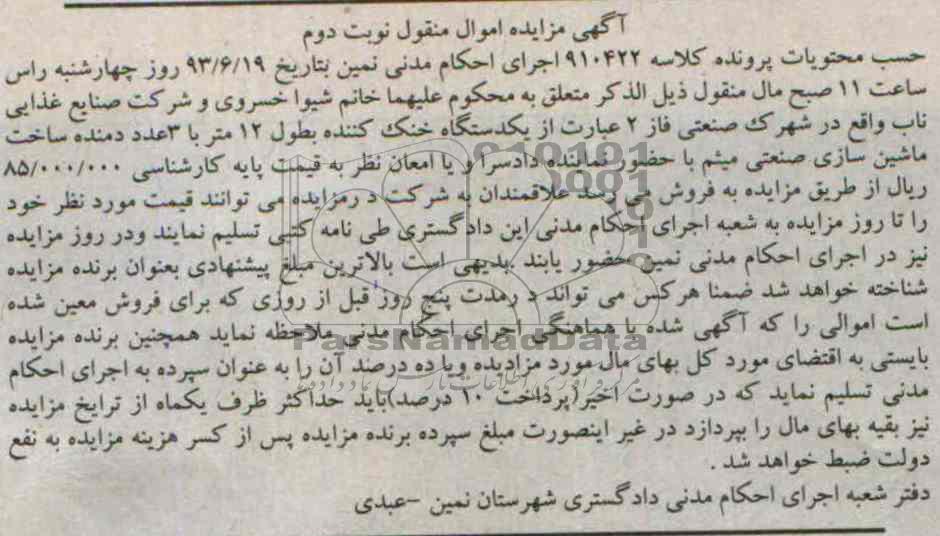 آگهی مزایده اموال منقول نوبت دوم
حسب محتویات پرونده کلاسه ۹۱۰۴۲۲ اجرای احکام مدنی نمین بتاریخ ۹۳/۶/۱۹ روز چهارشنبه راس
ساعت ۱۱ صبح مال منقول ذیل الذکر متعلق به محکوم علیهما خانم شیوا خسروی و شرکت صنایع غذایی
ناب واقع در شهرک صنعتی فاز ۲ عبارت از یکدستگاه خنک کننده بطول ۱۲ متر با ۳عدد دمنده ساخت
ماشین سازی صنعتی میثم با حضور نماینده دادسرا و یا امعان نظر به قیمت پایه کارشناسی ۸۵/۰۰۰/۰۰۰
ریال از طریق مزایده به فروش می رسد علاقمندان به شرکت د رمزایده می توانند قیمت مورد نظر خود
را تا روز مزایده به شعبه اجرای احکام مدنی این دادگستری طی نامه کتبی تسلیم نمایند ودر روز مزایده
نیز در اجرای احکام مدنی نمین حضور یابند .بدیهی است بالاترین مبلغ پیشنهادی بعنوان برنده مزایده
شناخته خواهد شد ضمنا هرکس می تواند د رمدت پنج روز قبل از روزی که برای فروش معین شده
است اموالی را که آگهی شده با هماهنگی اجرای احکام مدنی ملاحظه نماید همچنین برنده مزایده
بایستی به اقتضای مورد کل بهای مال مورد مزادیده ویا ده درصد آن را به عنوان سپرده به اجرای احکام
مدنی تسلیم نماید که در صورت اخیر(پرداخت ۱۰ درصد)باید حداکثر ظرف یکماه از ترایخ مزایده
نیز بقیه بهای مال را بپردازد در غیر اینصورت مبلغ سپرده برنده مزایده پس از کسر هزینه مزایده به نفع
دولت ضبط خواهد شد .
دفتر شعبه اجرای احکام مدنی دادگستری شهرستان نمین -عبدی
ParsNamadData